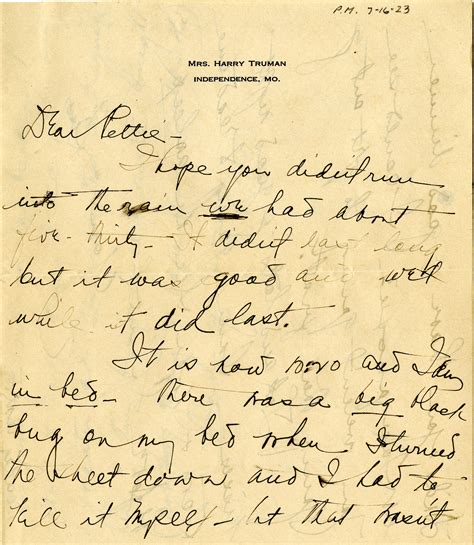 P.M. 7-16-23
MRS. HARRY TRUMAN
INDEPENDENCE, MO.
Dear Pettie -
I hope you didn't run
into the rain we had about
five-thirty - It didn't last long
but it was good and wet
while it did last.
It is now 10:20 and I am
in bed - there was a big black
bug on my bed when I turned
the sheet down and I had to
kill it myself - but that wasn't